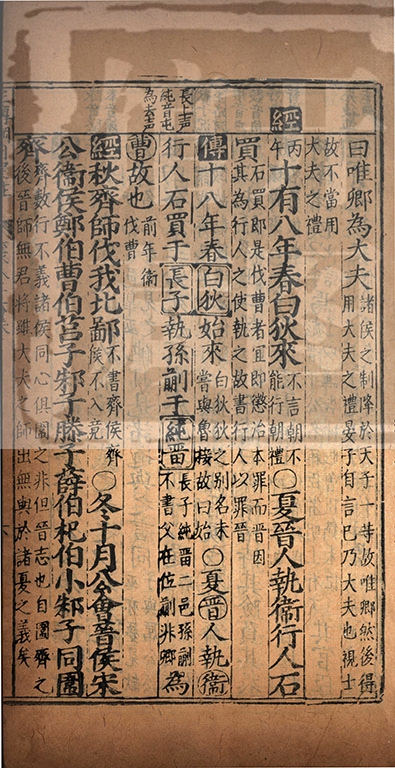 曰唯卿為大夫諸侯之制降於天子一等故唯卿然後得用大夫之禮晏子自言巳乃大夫也視士
故不當用大夫之禮
經丙午十有八年春白狄來不言朝不能行朝禮○夏晉人執衞行人石
買石買即是伐曹者宜即懲治本罪而晉因其為行人之使執之故書行人以罪晉
傳十八年春白狄始來白狄狄之別名未嘗與魯接故曰始○夏晉人執衞
長上声
純音屯
為去声
行人石買于長子執孫蒯于純畱長子純畱二邑孫蒯不書父在位蒯非卿為
曹故也前年衞伐曹
經秋齊師伐我北鄙不書齊侯齊侯不入竟○冬十月公會晉侯宋
公衞侯鄭伯曹伯莒子邾子滕子薛伯杞伯小邾子同圍
齊齊數行不義諸侯同心俱圍之非但晉志也自圍齊之後晉師無君將雖大夫之師出無與於諸夏之義矣